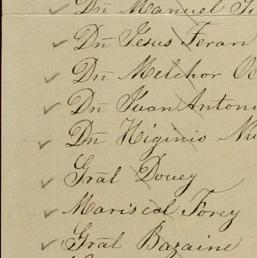 Dn Manuel
Dn Jesus Teran
Dn Melchor Oc
Dn Juan Antoni
Dn Higinio Nu
Gral Douey
Mariscal Forey
Gral Bazaine